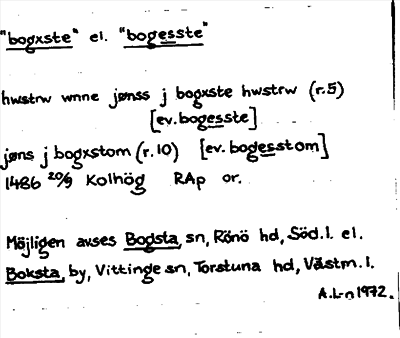 "bogxste" el. "bogesste"
hwstrw wnne jønss j bogxste hwstrw (r.5)
[ev. bogesste]
jøns j bogxstom (r.10) [ev. bogesstom]
1486 20/9 Kolhög RAp or.
Möjligen avses Bogsta, sn, Rönö hd, Söd.l. el.
Boksta, by, Vittinge sn, Torstuna hd, Västm.l.
A.L-n 1972.